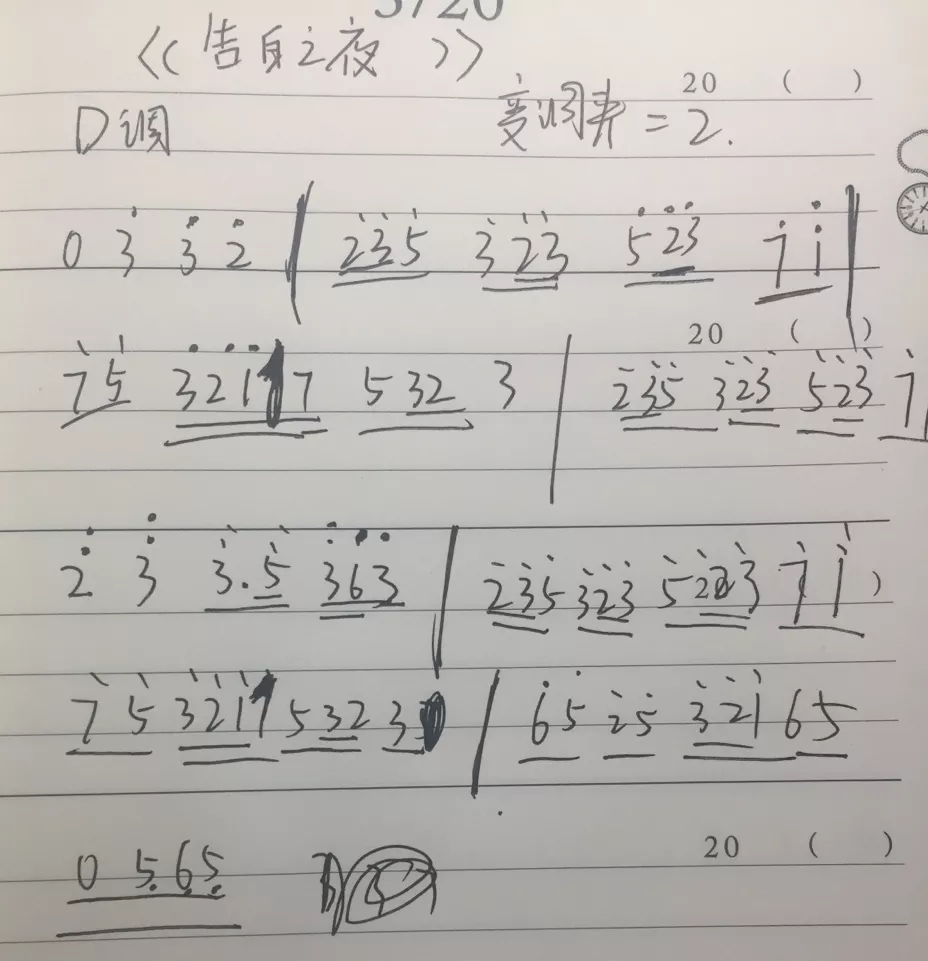 《告白之夜》
20 ( )
D调 变调夹=2.
0 3̇ 3̇ 2̇ | 2̇3̇5̇ 3̇2̇3̇ 5̇2̇3̇ 7̇ 1̇ |
20 ( )
7̇ 5̇ 3̇2̇1̇ 7 5 32 3 | 2̇3̇5̇ 3̇2̇3̇ 5̇2̇3̇ 7̇
2̇ 3̇ 3̇.5̇ 3̇6̇3̇ | 2̇3̇5̇ 3̇2̇3̇ 5̇2̇3̇ 7̇ 1̇
7̇ 5̇ 3̇2̇1̇ 5 32 3 | 6̇5̇ 2̇5̇ 3̇2̇1̇ 65
0 5̣6̣5̣
20 ( )